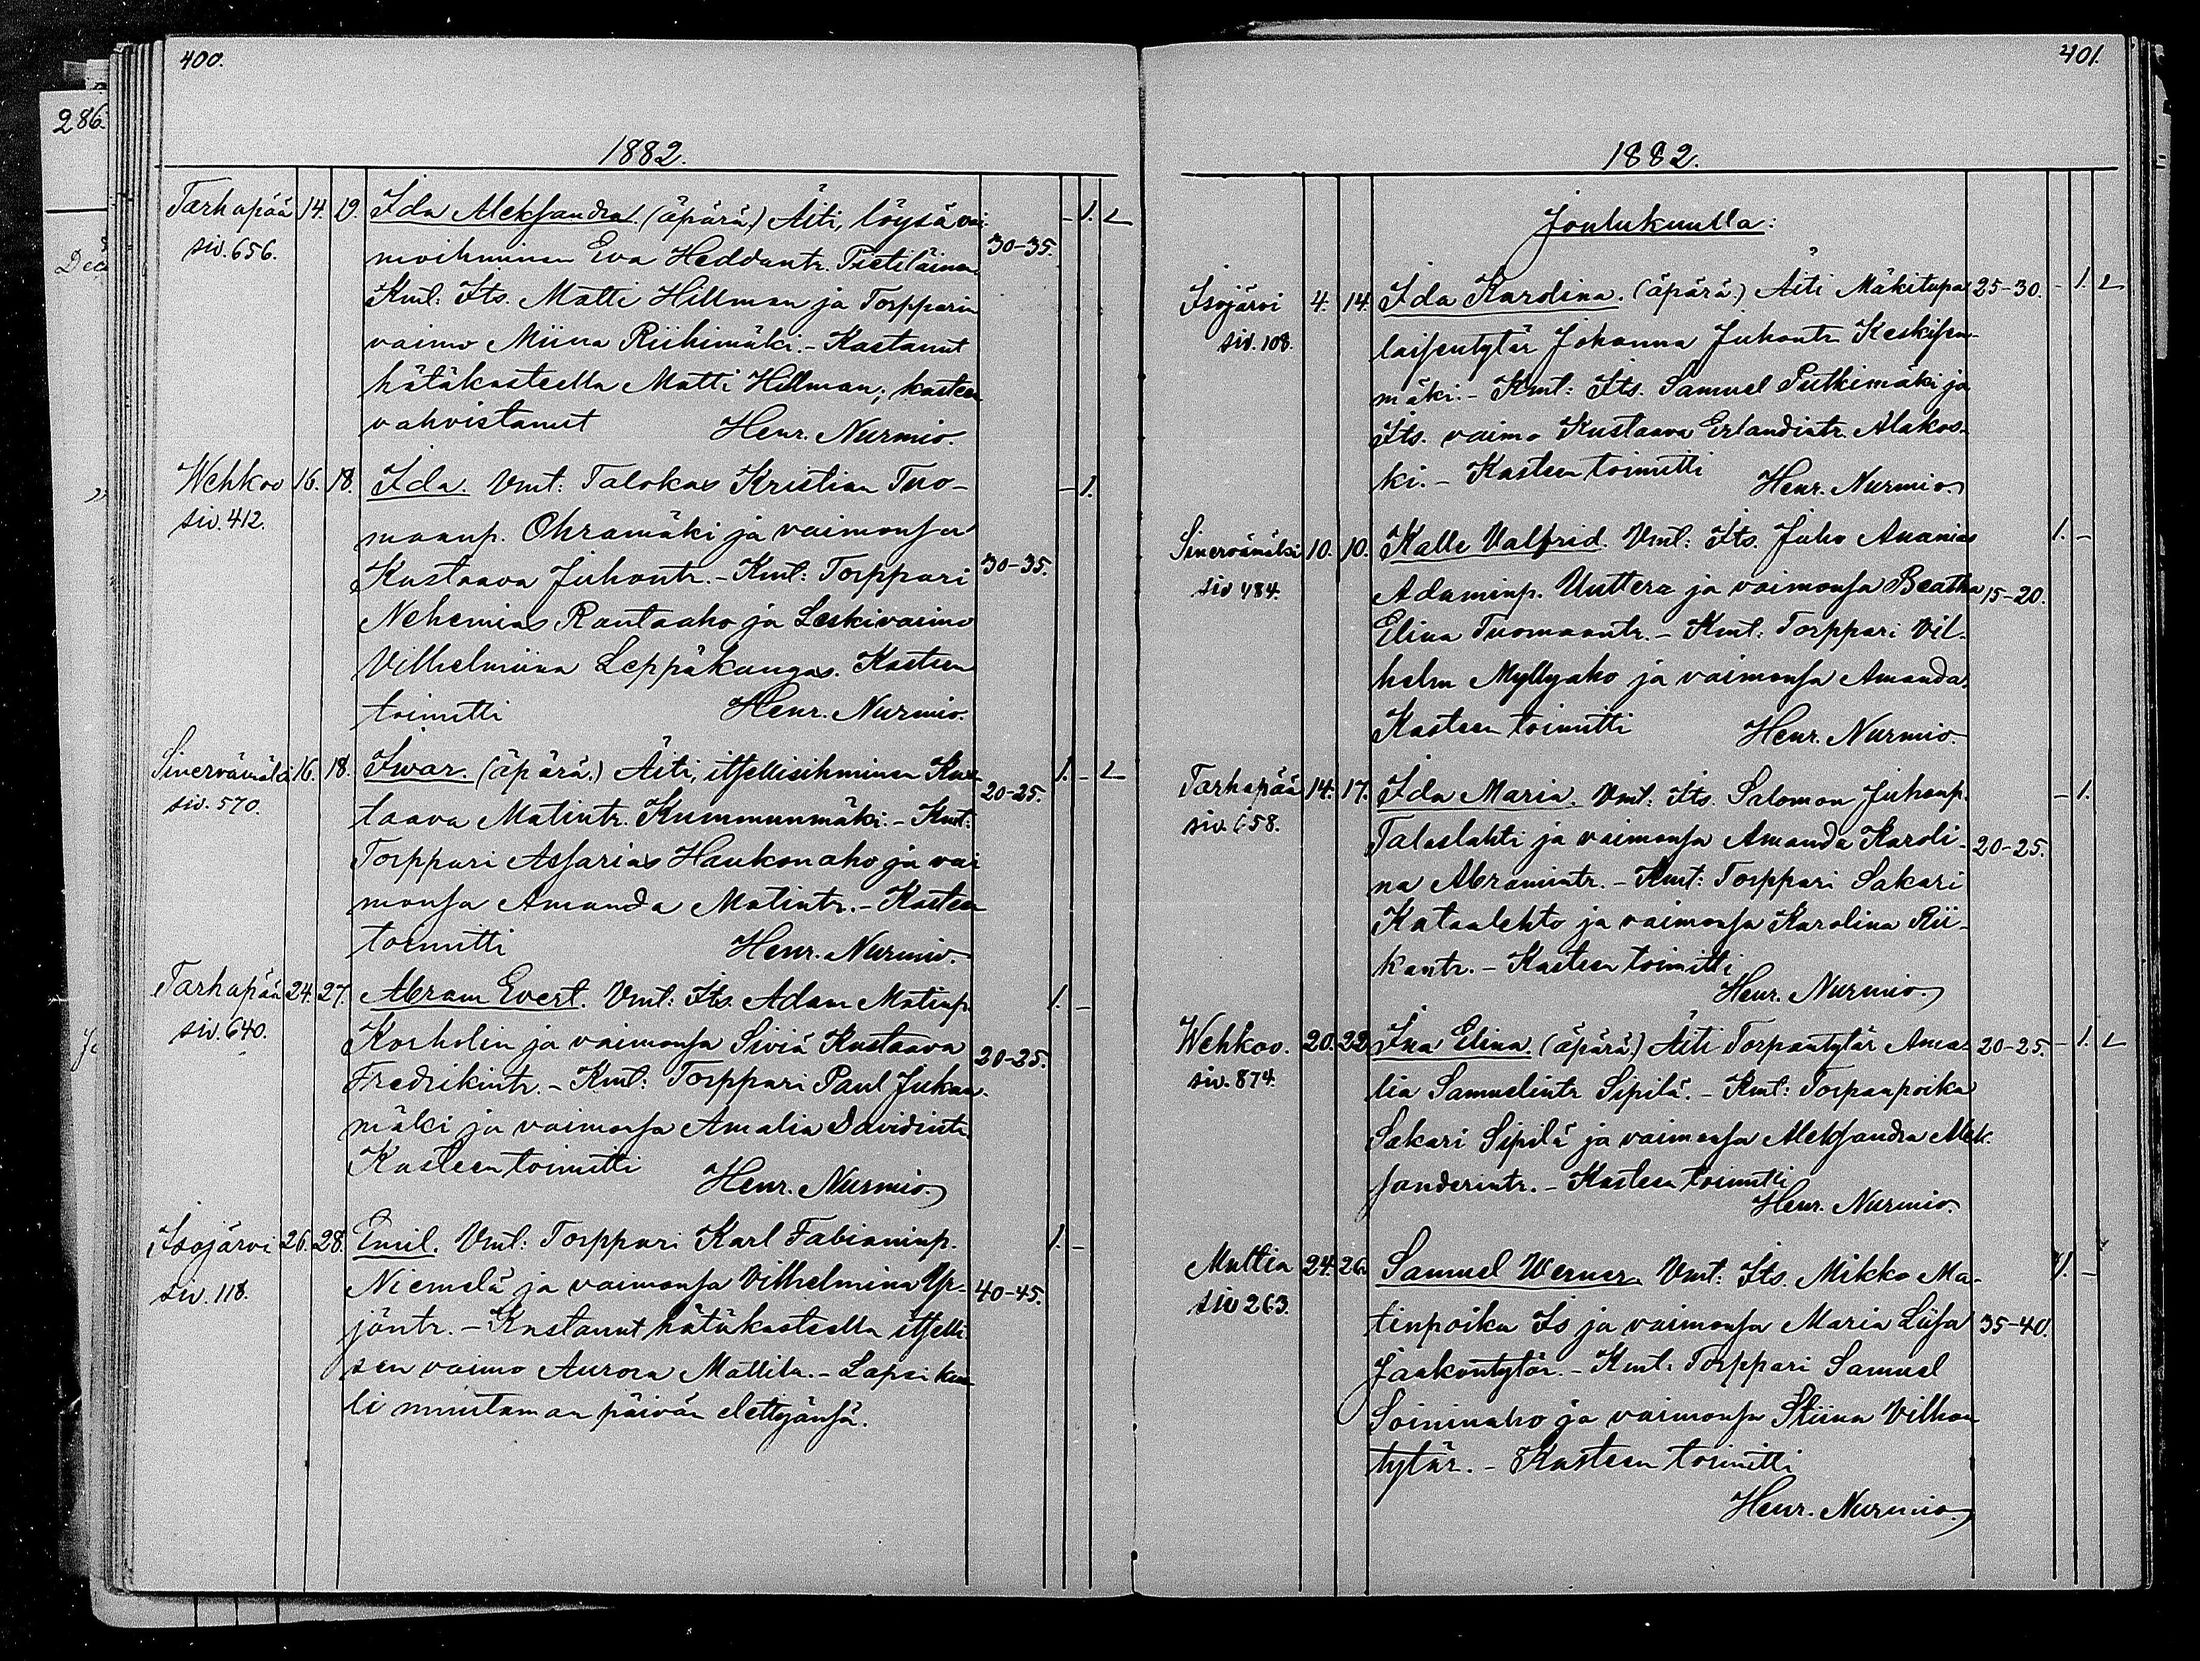 400.
286.
Dec
1882.
Tarhapää 14. 19. Ida Aleksandra. (äpärä.) Äiti, löysä vai- - 1. L
siv. 656. moihminen Eva Heddantr. Tietiläinen. 30-35.
Kmt: Its. Matti Hillman ja Torpparin
vaimo Miina Riihimäki. - Kastanut
hätäkasteella Matti Hillman, kasteen
vahvistanut Henr. Nurmio.
Wehkoo 16. 18. Ida. Vmt: Talokas Kristian Tuo- - 1.
siv. 412. maanp. Ohramäki ja vaimonsa
Kustaava Juhontr. - Kmt: Torppari 30-35.
Nehemias Rantaaho ja Leskivaimo
Vilhelmiina Leppäkangas. Kasteen
toimitti Henr. Nurmio.
Sinervämäki 16. 18. Iwar. (äpärä.) Äiti, itsellisihminen Kus- 1. - L
siv. 570. taava Matintr. Kummunmäki. - Kmt: 20-25.
Torppari Assarias Haukonaho ja vai
monsa Amanda Matintr. - Kasteen
toimitti Henr. Nurmio.
Tarhapää 24. 27. Abram Evert. Vmt: Its. Adam Matinp. 1. -
siv. 640. Korholin ja vaimonsa Siviä Kustaava 20-25.
Fredrikintr. - Kmt: Torppari Paul Jukan-
mäki ja vaimonsa Amalia Davidintr.
Kasteen toimitti Henr. Nurmio.
Isojärvi 26. 28. Emil. Vmt: Torppari Karl Fabianinp. 1. -
siv. 118. Niemelä ja vaimonsa Vilhelmina Yr- 40-45.
jöntr. - Kastanut hätäkasteella itselli-
sen vaimo Aurora Mattila. - Lapsi kuo-
li muutaman päivän elettyänsä.
401.
1882.
Joulukuulla:
Isojärvi 4. 14. Ida Karolina. (äpärä.) Äiti Mäkitupa 25-30. - 1. L
siv. 108. laisentytär Johanna Juhontr Keskisen-
mäki. - Kmt: Its. Samuel Putkimäki ja
Its. vaimo Kustaava Erlandintr. Alakos-
ki. - Kasteen toimitti Henr. Nurmio.
Sinervämäki 10. 10. Kalle Valfrid. Vmt: Its. Juho Ananias 1. -
siv 484. Adaminp. Uuttera ja vaimonsa Beatha 15-20.
Elina Tuomaantr. - Kmt: Torppari Vil-
helm Myllyaho ja vaimonsa Amanda.
Kasteen toimitti Henr. Nurmio.
Tarhapää 14. 17. Ida Maria. Vmt: Its. Salomon Juhonp. - 1.
siv. 658. Talaslahti ja vaimonsa Amanda Karoli- 20-25.
na Abramintr. - Kmt: Torppari Sakari
Katalehto ja vaimonsa Karolina Rii-
kantr. - Kasteen toimitti
Henr. Nurmio.
Wehkoo. 20. 22. Ina Elina. (äpärä) Äiti Torpantytär Ama- 20-25. - 1. L
siv. 874. lia Samuelintr Sipilä. - Kmt: Torpanpoika
Sakari Sipilä ja vaimonsa Aleksandra Alek-
sanderintr. - Kasteen toimitti
Henr. Nurmio.
Multia 24. 26. Samuel Werner. Vmt: Its. Mikko Ma- 1. -
siv 263. tinpoika Is ja vaimonsa Maria Liisa 35-40.
Jaakontytär. - Kmt: Torppari Samuel
Soininaho ja vaimonsa Stiina Vilhon
tytär. - Kasteen toimitti
Henr. Nurmio.